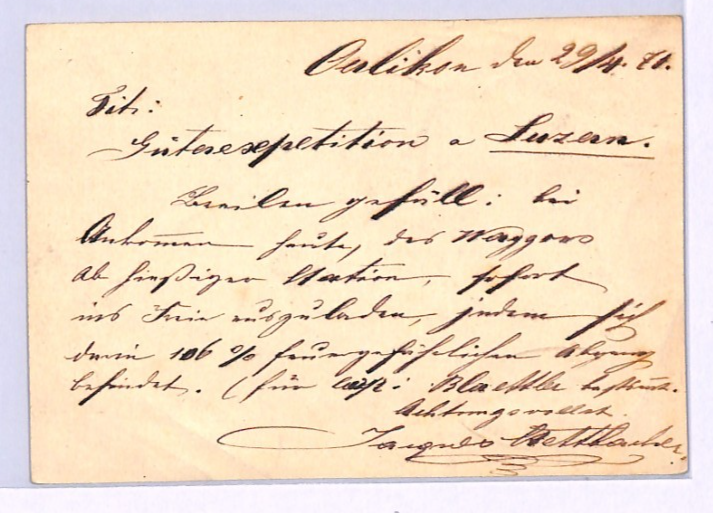 Oerlikon den 29/4. 71.
Tit:
Güterexpetition a Luzern.
gefäll: bei
Ankommen heute, des Waggons
ab hießiger Station, sofort
ins Freie auszuladen, indem sich
darin 106 % feuergefährlichen Abgang
befindet. (für Blaettler bestimmt.
Achtungsvollst.
Jacques